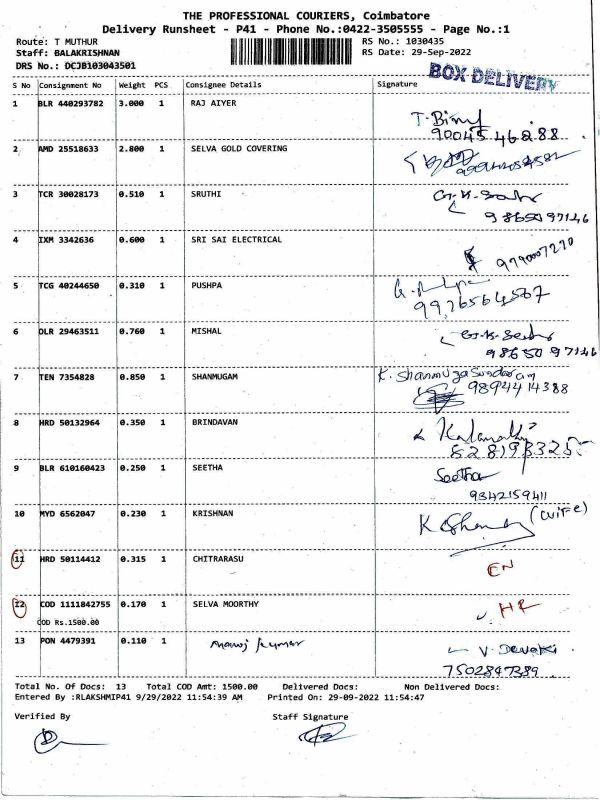 THE PROFESSIONAL COURIERS, Coimbatore
Delivery Runsheet - P41 - Phone No.:0422-3505555 - Page No.:1
Route: T MUTHUR RS No.: 1030435
Staff: BALAKRISHNAN RS Date: 29-Sep-2022
DRS No.: DCJB103043501
BOX DELIVERY
S No Consignment No Weight PCS Consignee Details Signature
1 BLR 440293782 3.000 1 RAJ AIYER
90045 46288
2 AMD 25518633 2.800 1 SELVA GOLD COVERING
3 TCR 30028173 0.510 1 SRUTHI
98650 97146
4 IXM 3342636 0.600 1 SRI SAI ELECTRICAL
9790007270
5 TCG 40244650 0.310 1 PUSHPA
9976564567
6 DLR 29463511 0.760 1 MISHAL
98650 97146
7 TEN 7354828 0.850 1 SHANMUGAM K. Shanmuga Sundaram
9894414388
8 HRD 50132964 0.350 1 BRINDAVAN
8281983325
9 BLR 610160423 0.250 1 SEETHA Seetha
9842159411
10 MYD 6562047 0.230 1 KRISHNAN (wife)
11 HRD 50114412 0.315 1 CHITRARASU EN
12 COD 1111842755 0.170 1 SELVA MOORTHY HR
COD Rs.1500.00
13 PON 4479391 0.110 1 Manoj kumar V. Devaki
7502847389
Total No. Of Docs: 13 Total COD Amt: 1500.00 Delivered Docs: Non Delivered Docs:
Entered By :RLAKSHMIP41 9/29/2022 11:54:39 AM Printed On: 29-09-2022 11:54:47
Verified By Staff Signature